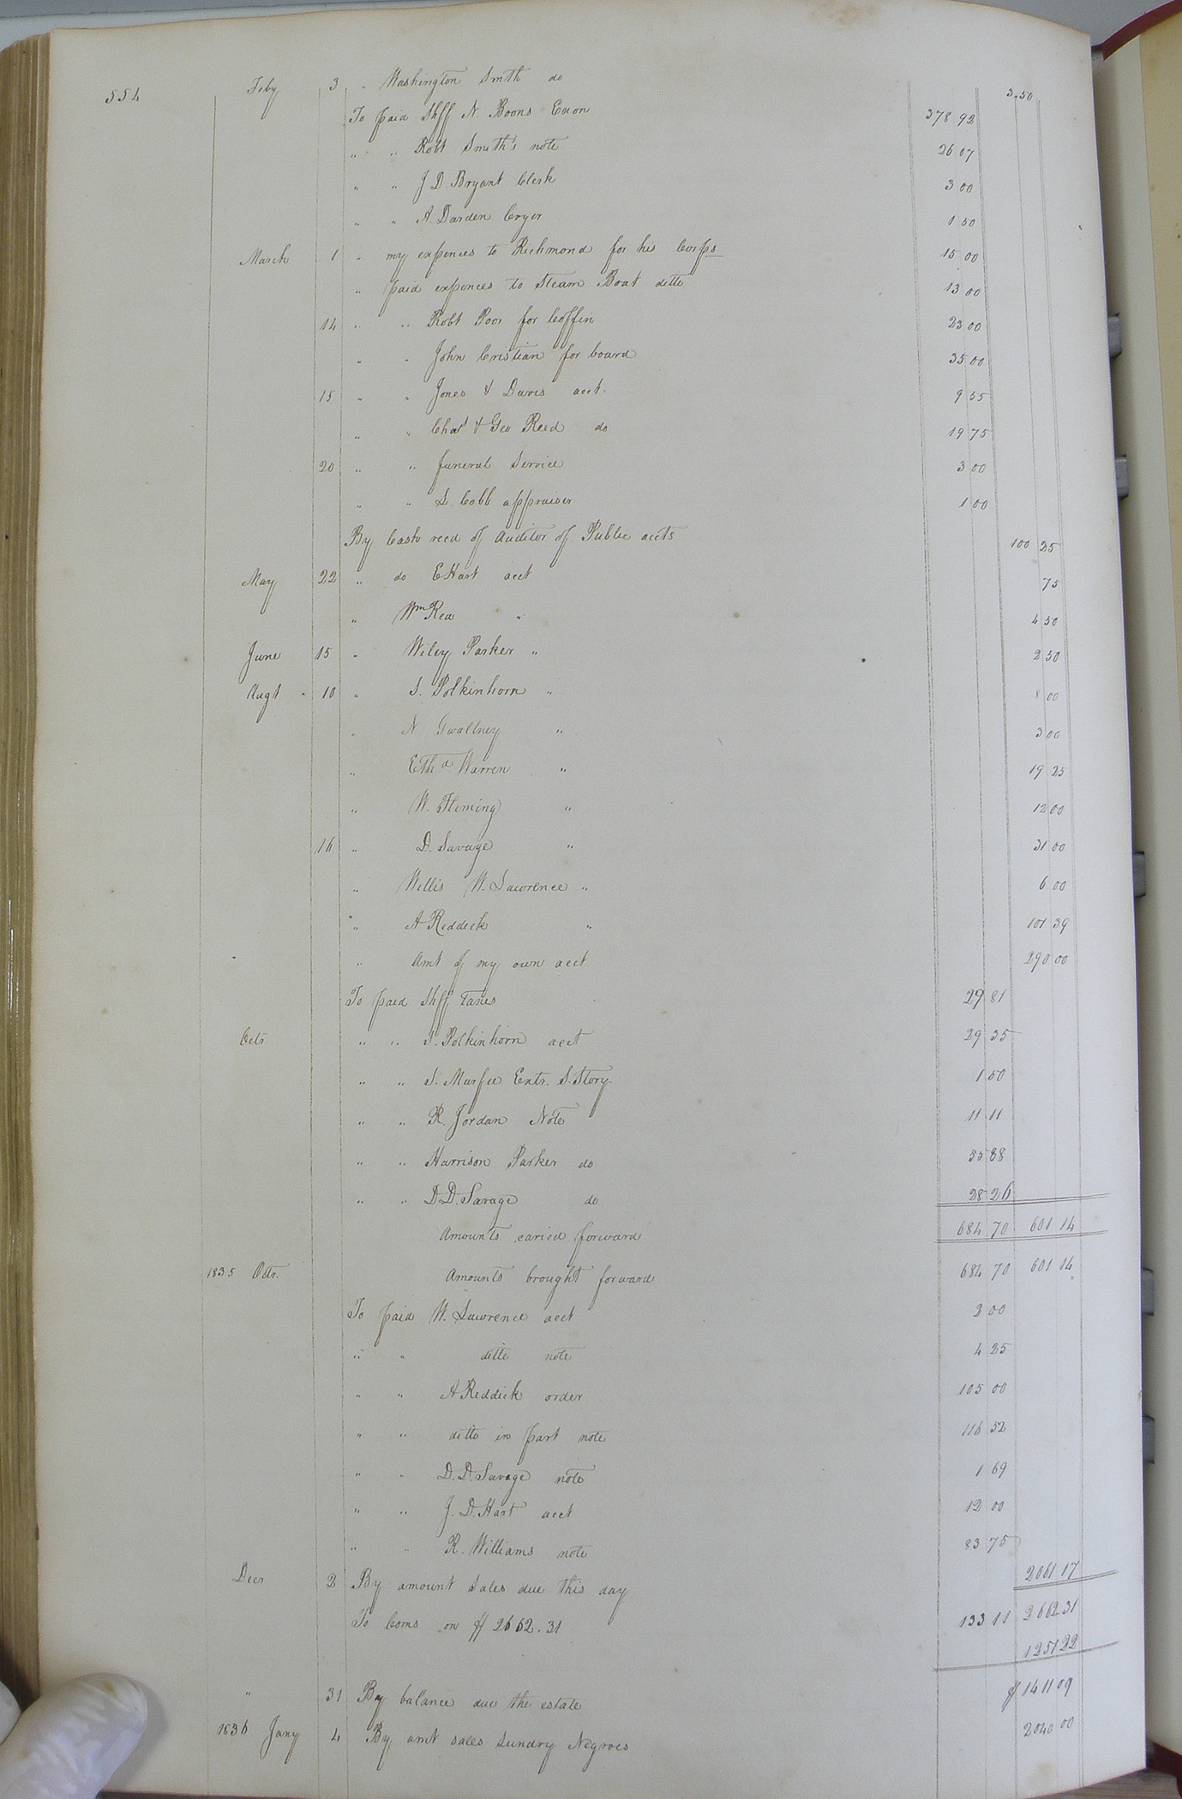 554 Feby 3 " Washington Smith do 3.50
To paid Shff N. Boons Exon 378 92
" " Robt Smith's note 26 07
" " J D Bryant Clerk 3 00
" " A. Darden Cryer 1 50
March 1 " my expences to Richmond for his Corps 15 00
" paid expences to Steam Boat ditto 13 00
14 " " Robt Poor for Coffin 23 00
" " John Cristian for board 35 00
15 " " Jones & Davis acct 9 55
" " Chas & Geo Reed do 19 75
20 " " funeral Service 3 00
" " S. Cobb appraiser 1 00
By Cash recd of Auditor of Public accts 100 25
May 22 " do E Hart acct 75
" Wm Rea " 4 50
June 15 " Wiley Parker " 2 50
Augt 10 " S. Polkinhorn " 00
" N Gwaltney " 3 00
" Etha Warren " 19 25
" W. Fleming " 12 00
16 " D. Savage " 31 00
" Willis W. Lawrence " 6 00
" A Reddick " 101 39
" Amt of my own acct 290 00
To paid Shff Taxes 29 81
Octr " " S. Polkinhorn acct 29 35
" " S. Murfee Extr. S. Story 1 50
" " R. Jordan Note 11 11
" " Harrison Parker do 55 88
" " D.D. Savage do 28 26
Amounts caried forward 684 70 601 14
1835 Octr. Amounts brought forward 684 70 601 14
To paid W. Lawrence acct 2 00
" " ditto note 4 25
" " A Reddick order 105 00
" " ditto in part note 116 52
" " D. D. Savage note 1 69
" " J. D. Hart acct 12 00
" " R. Williams note 83 75
Decr 2 By amount Sales due this day 2061 17
To Coms on $ 2662.31 133 11 2662 31
1251 22
" 31 By balance due the estate $ 1411 09
1836 Jany 4 By amt sales Sundry Negroes 2040 00